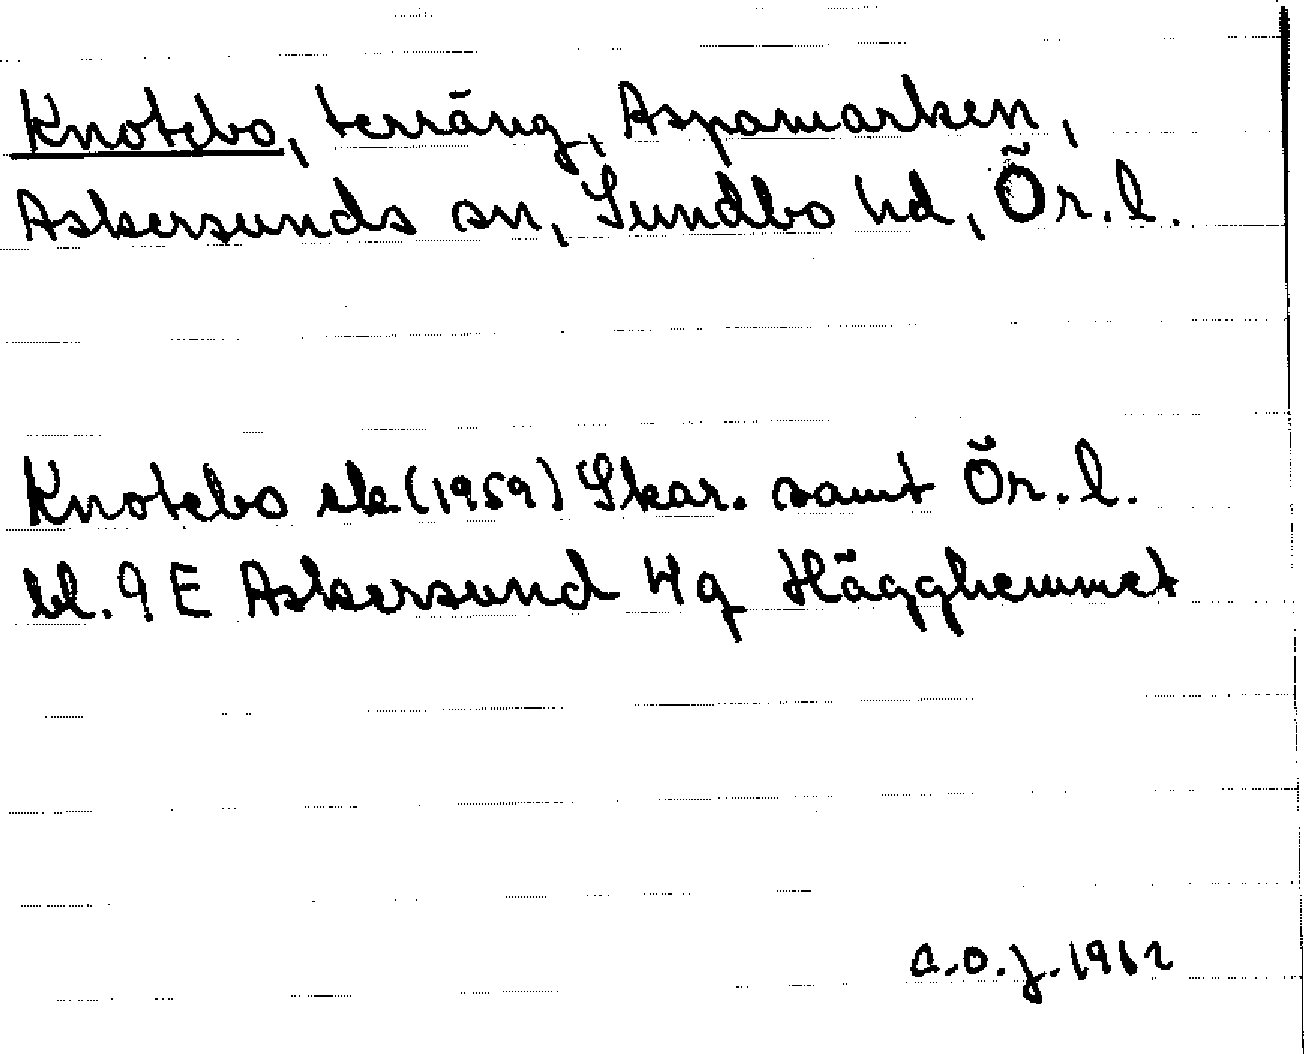 Knotebo, terräng, Aspamarken,
Askersunds sn, Sundbo hd, Ör. l.
Knotebo ek (1959) Skar. samt Ör. l.
bl. 9 E Askersund 4g Hägghemmet
C.O.J. 1962